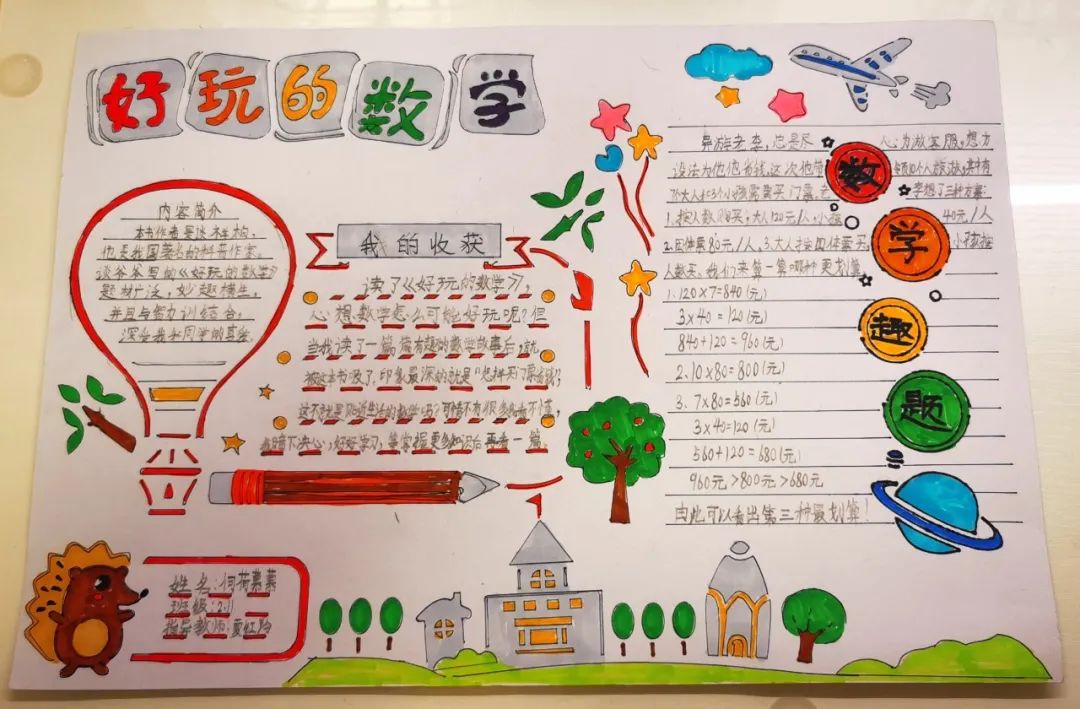 好玩的数学
内容简介
本书作者是谈祥柏,
他是我国著名的科普作家。
谈爷爷写的《好玩的数学》
题材广泛,妙趣横生,
并且与智力训结合,
深受我和同学的喜爱。
我的收获
读了《好玩的数学》,
心想数学怎么可能好玩呢?但
当我读了一篇篇有趣的数学故事后,就
被这本书吸了,印象最深的就是“怎样买门票省钱”,
这不就是贴近生活的数学吗?可惜不有很多知识不懂,
我暗下决心,好好学习,等掌握更多知识后再看一篇。
姓名:何荷慕慕
班级:2.11
指导教师:夏红
数学趣题
导游老李,总是尽心为游客服,想方
设法为他他省钱,这次他带领10个人旅游,其中有
7个大人和3个小孩需要买门票,老李想了三种方案:
1.按人数购买;大人120元/人,小孩40元/人
2.团体票80元/人,3.大人按团体票买,小孩按
人数买。我们来算一算哪种更划算
1.120×7=840(元)
3×40=120(元)
840+120=960(元)
2.10×80=800(元)
3.7×80=560(元)
3×40=120(元)
560+120=680(元)
960元>800元>680元
由此可以看出第三种最划算!